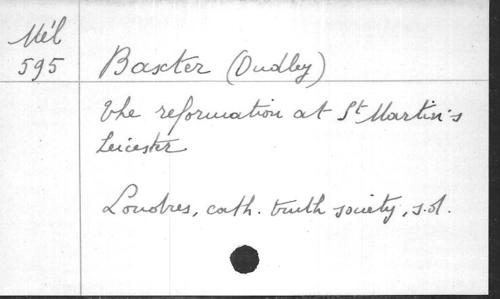 Mél
595
Baxter (Dudley)
The reformation at St Martin's
Leicester
Londres, cath. truth society, s.d.